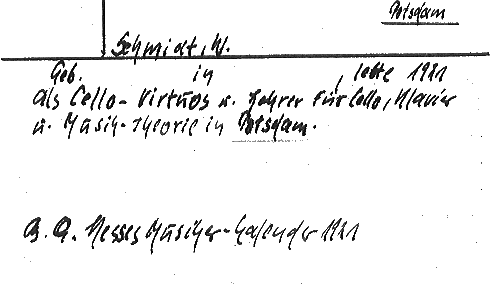 Potsdam
Schmidt, W.
Geb. in , lebte 1921
als Cello-Virtuos u. Lehrer für Cello, Klavier
u. Musik-Theorie in Potsdam.
B. A. Hesses Musiker-Kalender 1921